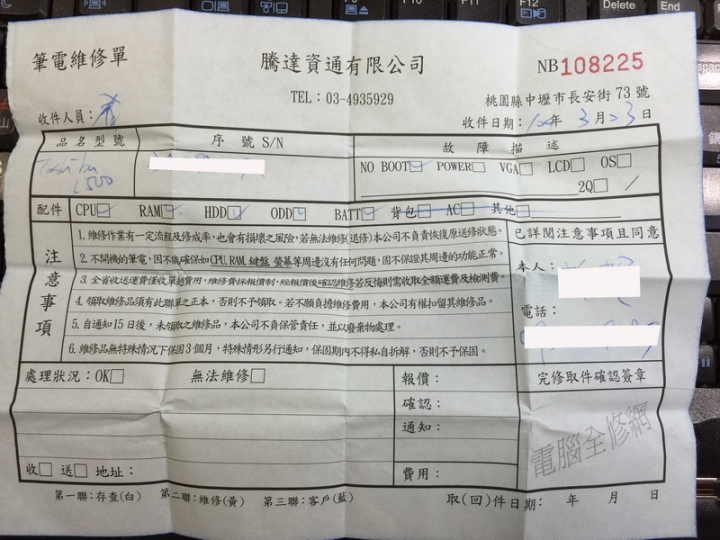 筆電維修單
騰達資通有限公司
NB108225
TEL：03-4935929
桃園縣中壢市長安街 73 號
收件人員：
收件日期： 年 3 月 23 日
品名型號
序 號 S/N
故 障 描 述
Toshiba
L500
NO BOOT POWER VGA LCD OS
2Q /
配件 CPU RAM HDD ODD BATT 背包 AC 其他
注意事項
1. 維修作業有一定流程及修成率，也會有損壞之風險，若無法維修(退修)本公司不負責恢復原送修狀態。
2. 不開機的筆電，因不能確保如 CPU, RAM, 鍵盤, 螢幕等周邊沒有任何問題，因不保證其周邊的功能正常。
3. 全省收送運費僅收單趟費用，維修費採報價制，經報價後確認維修若反悔則需收取全額運費及檢測費。
4. 領取維修品須有此聯單之正本，否則不予領取。若不願負擔維修費用，本公司有權扣留其維修品。
5. 自通知15日後，未領取之維修品，本公司不負保管責任，並以廢棄物處理。
6. 維修品無特殊情況下保固3個月，特殊情形另行通知，保固期內不得私自拆解，否則不予保固。
已詳閱注意事項且同意
本人：
電話：
處理狀況：OK 無法維修
報價：
確認：
通知：
費用：
完修取件確認簽章
電腦全修網
收 送 地址：
第一聯：存查(白) 第二聯：維修(黃) 第三聯：客戶(藍)
取(回)件日期： 年 月 日
F12
Delete
End